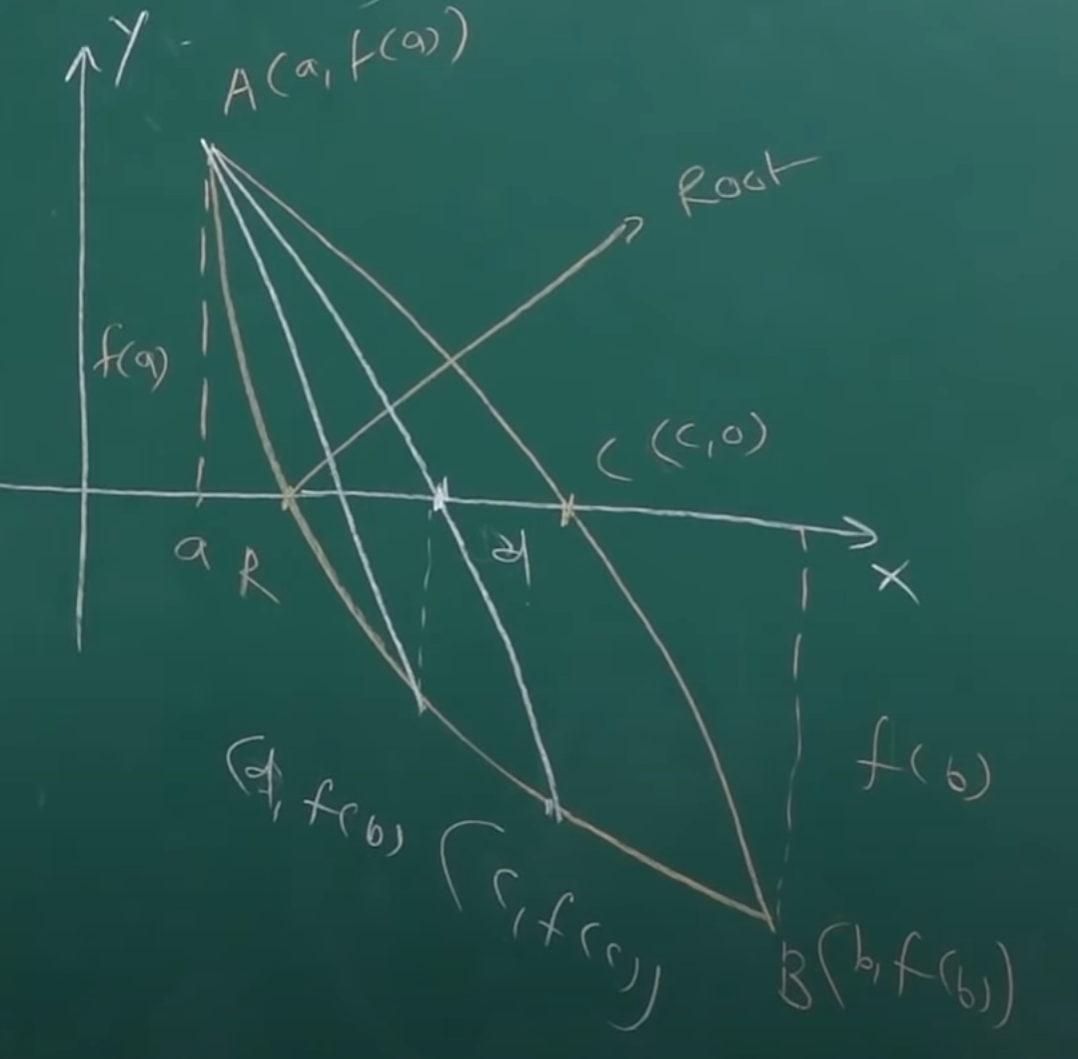 Y
A(a, f(a))
Root
f(a)
C (c,0)
a
R
d
X
f(b)
(d, f(b)
(c, f(c))
B(b, f(b))